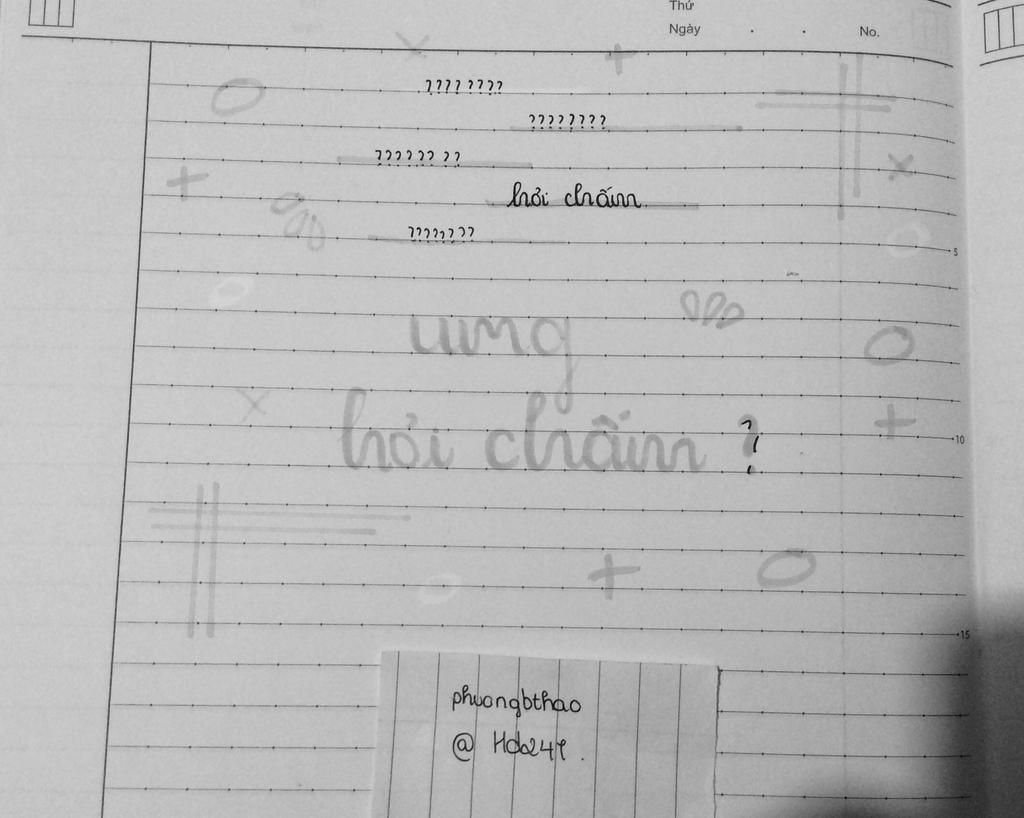 Thứ
Ngày . . No.
???? ????
????????
?????? ??
hỏi chấm
????????
5
ưng
hỏi chấm ?
10
15
phuongbthao